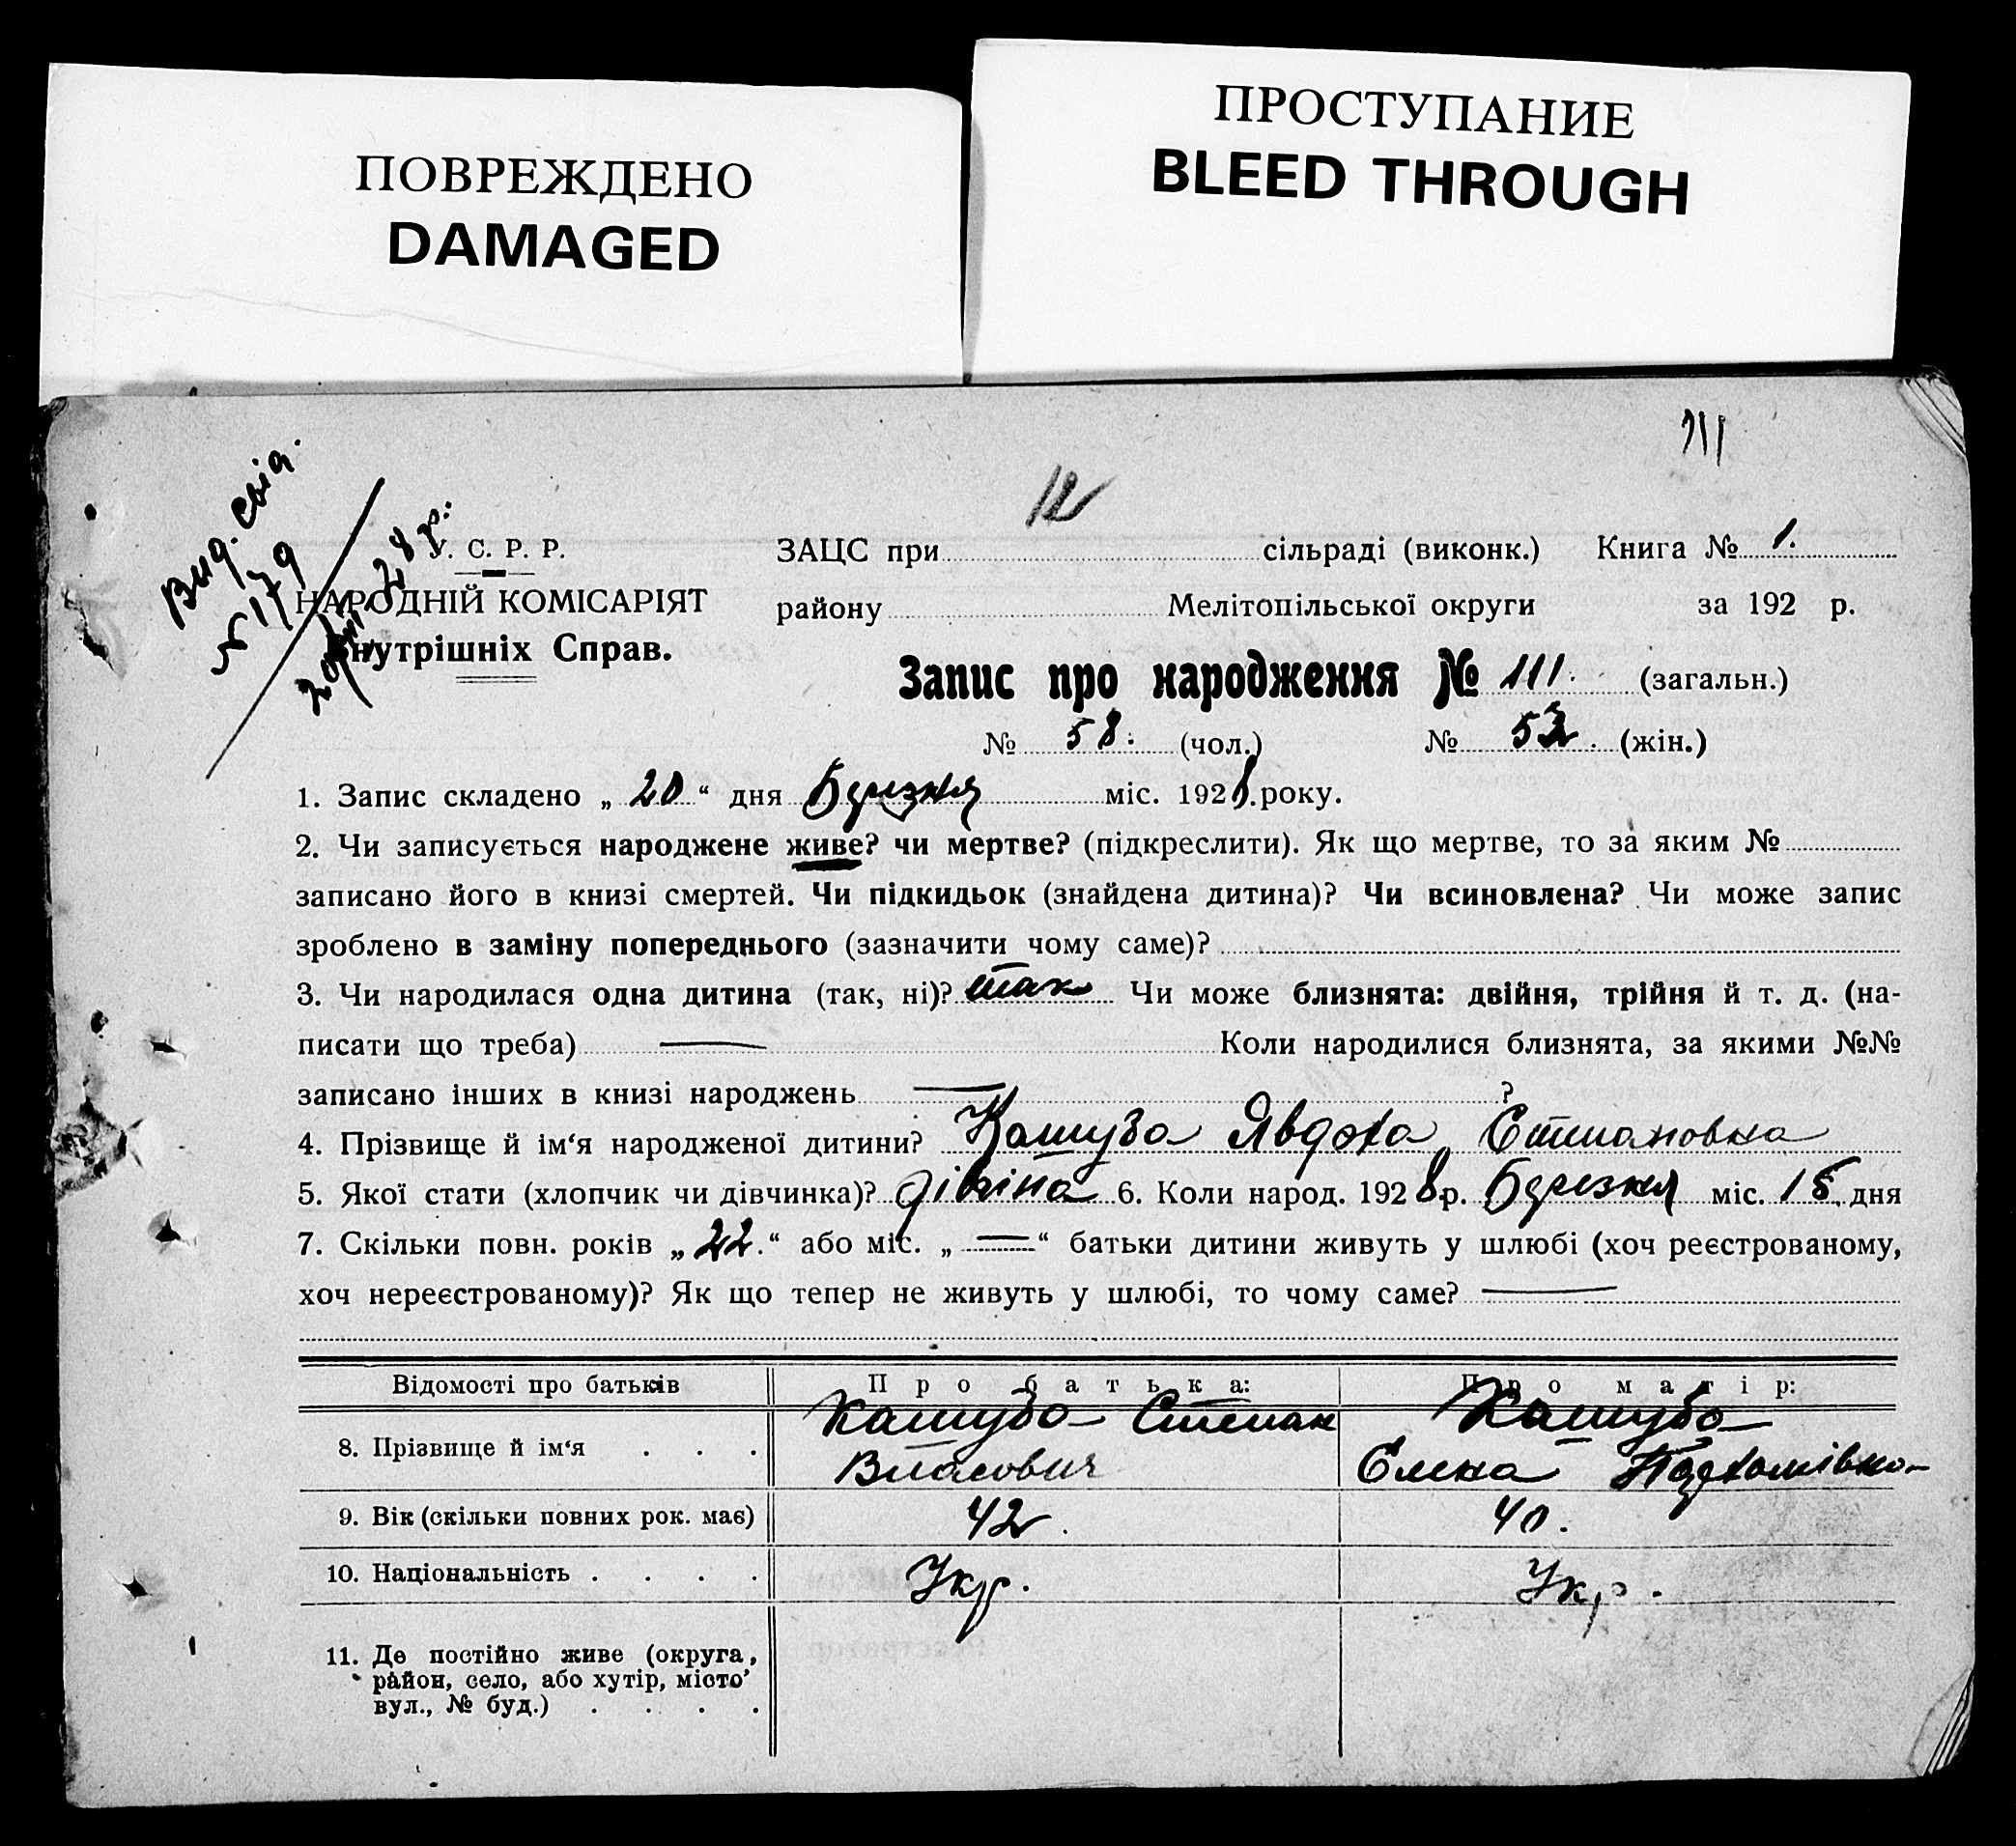 ПОВРЕЖДЕНО
DAMAGED
ПРОСТУПАНИЕ
BLEED THROUGH
111
12
Вид. свід.
№ 179
28 р.
У. С. Р. Р.
НАРОДНІЙ КОМІСАРІЯТ
Внутрішніх Справ.
ЗАЦС при сільраді (виконк.) Книга № 1.
району Мелітопільської округи за 192 р.
Запис про народження № 111. (загальн.)
№ 58. (чол.) № 53. (жін.)
1. Запис складено „ 20 “ дня Березня міс. 1928 року.
2. Чи записується народжене живе? чи мертве? (підкреслити). Як що мертве, то за яким №
записано його в книзі смертей. Чи підкидьок (знайдена дитина)? Чи всиновлена? Чи може запис
зроблено в заміну попереднього (зазначити чому саме)?
3. Чи народилася одна дитина (так, ні)? так Чи може близнята: двійня, трійня й т. д. (на-
писати що треба) — Коли народилися близнята, за якими №№
записано інших в книзі народжень — ?
4. Прізвище й ім‘я народженої дитини? Кашуба Явдоха Степановна
5. Якої стати (хлопчик чи дівчинка)? дівчина 6. Коли народ. 1928 р. Березня міс. 15 дня
7. Скільки повн. років „ 22. “ або міс. „ — “ батьки дитини живуть у шлюбі (хоч реєстрованому,
хоч нереєстрованому)? Як що тепер не живуть у шлюбі, то чому саме? —
Відомості про батьків Про батька: Про матір:
8. Прізвище й ім‘я . . . Кашуба Степан Кашуба
Власович Елена Пархомівна
9. Вік (скільки повних рок. має) 42. 40.
10. Національність . . . . Укр. Укр.
11. Де постійно живе (округа,
район, село, або хутір, місто
вул., № буд.) . . . .